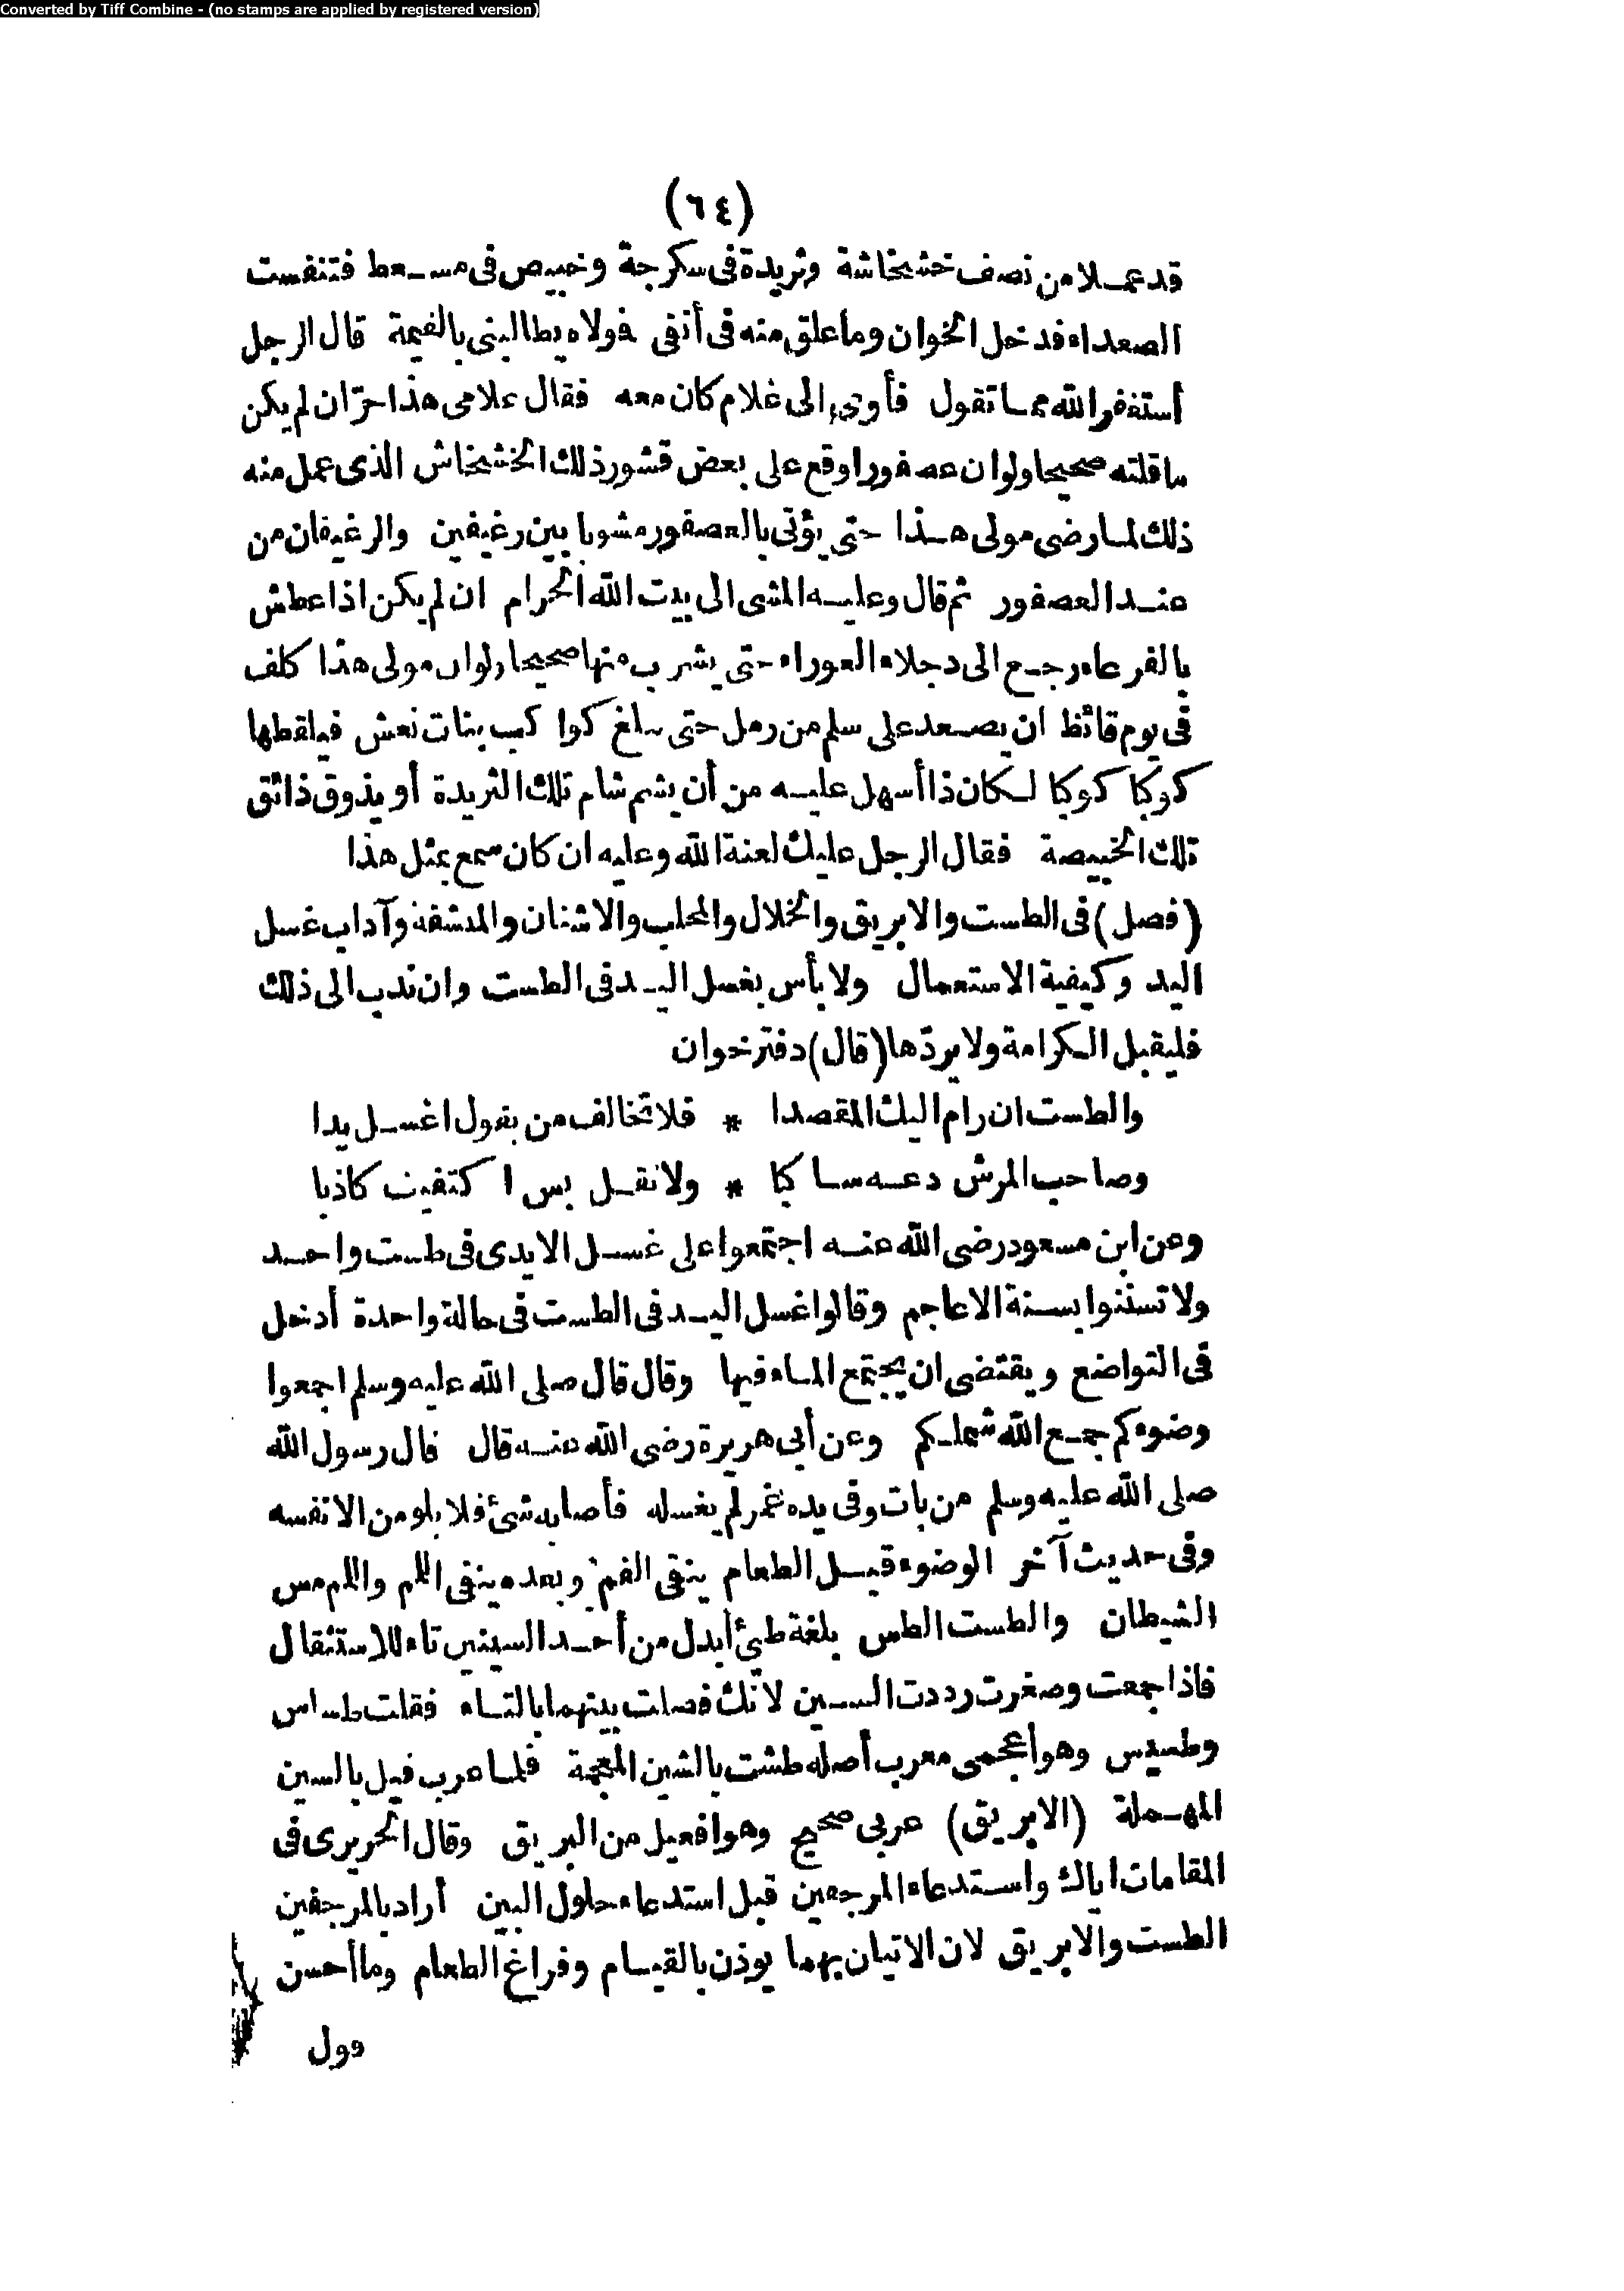 Converted by Tiff Combine - (no stamps are applied by registered version)
(٦٤)
قد عملا من نصف خشخاشة وثريدة فى سكرجة وخبيص فى مسعط فتنفست
الصعداء فدخل الخوان وما علق منه فى أنفى فولاه يطالبنى بالقيمة قال الرجل
أستغفر الله مما تقول فأومى الى غلام كان معه فقال غلامى هذا حرّ ان لم يكن
ما قلته صحيحا ولو ان عصفورا وقع على بعض قشور ذلك الخشخاش الذى عمل منه
ذلك لما رضى مولى هذا حتى يؤتى بالعصفور مشويا بين رغيفين والرغيفان من
عند العصفور ثم قال وعليه المشى الى بيت الله الحرام ان لم يكن اذا عطش
بالفرعاء رجع الى دجلاء العوراء حتى يشرب منها صحيحا ولو ان مولى هذا كلف
فى يوم قائظ ان يصعد على سلم من رمل حتى يبلغ كواكب بنات نعش فيلقطها
كوكبا كوكبا لكان ذا أسهل عليه من أن يشم شام تلك الثريدة أو يذوق ذائق
تلك الخبيصة فقال الرجل عليك لعنة الله وعليه ان كان سمع بمثل هذا
(فصل) فى الطست والابريق والخلال والمحلب والاشنان والمنشفة وآداب غسل
اليد وكيفية الاستعمال ولا بأس بغسل اليد فى الطست وان ندب الى ذلك
فليقبل الكرامة ولا يردّها (قال) دفتر خوان
والطست ان رام اليك المقصدا * فلا تخالف من يقول اغسل يدا
وصاحب المرش دعه ساكبا * ولا تقل بس اكتفيت كاذبا
وعن ابن مسعود رضى الله عنه اجتمعوا على غسل الايدى فى طست واحد
ولا تستنوا بسنة الاعاجم وقالوا غسل اليد فى الطست فى حالة واحدة أدخل
فى التواضع ويقتضى ان يجتمع الماء فيها وقال قال صلى الله عليه وسلم اجمعوا
وضوءكم جمع الله شملكم وعن أبى هريرة رضى الله عنه قال قال رسول الله
صلى الله عليه وسلم من بات وفى يده غمر لم يغسله فأصابه شئ فلا يلومن الا نفسه
وفى حديث آخر الوضوء قبل الطعام ينقى الفم وبعده ينفى اللمم واللمم مس
الشيطان والطست الطس بلغة طيئ أبدل من أحد السينين تاء للاستثقال
فاذا جمعت وصغرت رددت السين لانك فصلت بينهما بالتاء فقلت طساس
وطسيس وهو أعجمى معرب أصله طشت بالشين المعجمة فلما عرب قيل بالسين
المهملة (الابريق) عربى صحيح وهو افعيل من البريق وقال الحريرى فى
المقامات اياك واستدعاء المرجفين قبل استدعاء حلول البين أراد بالمرجفين
الطست والابريق لان الاتيان بهما يوذن بالقيام وفراغ الطعام وما أحسن
قول